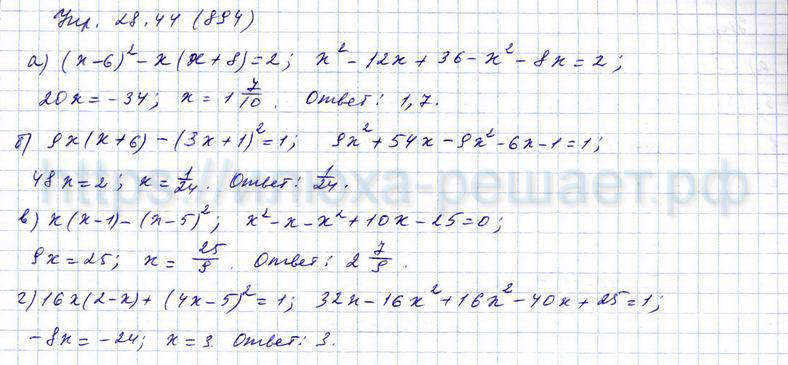 Упр. 28.44 (894)
а) (x-6)² - x(x+8) = 2; x² - 12x + 36 - x² - 8x = 2;
20x = -34; x = 1 7/10. Ответ: 1,7.
б) 9x(x+6) - (3x+1)² = 1; 9x² + 54x - 9x² - 6x - 1 = 1;
48x = 2; x = 1/24. Ответ: 1/24.
в) x(x-1) - (x-5)²; x² - x - x² + 10x - 25 = 0;
9x = 25; x = 25/9. Ответ: 2 7/9.
г) 16x(2-x) + (4x-5)² = 1; 32x - 16x² + 16x² - 40x + 25 = 1;
-8x = -24; x = 3. Ответ: 3.